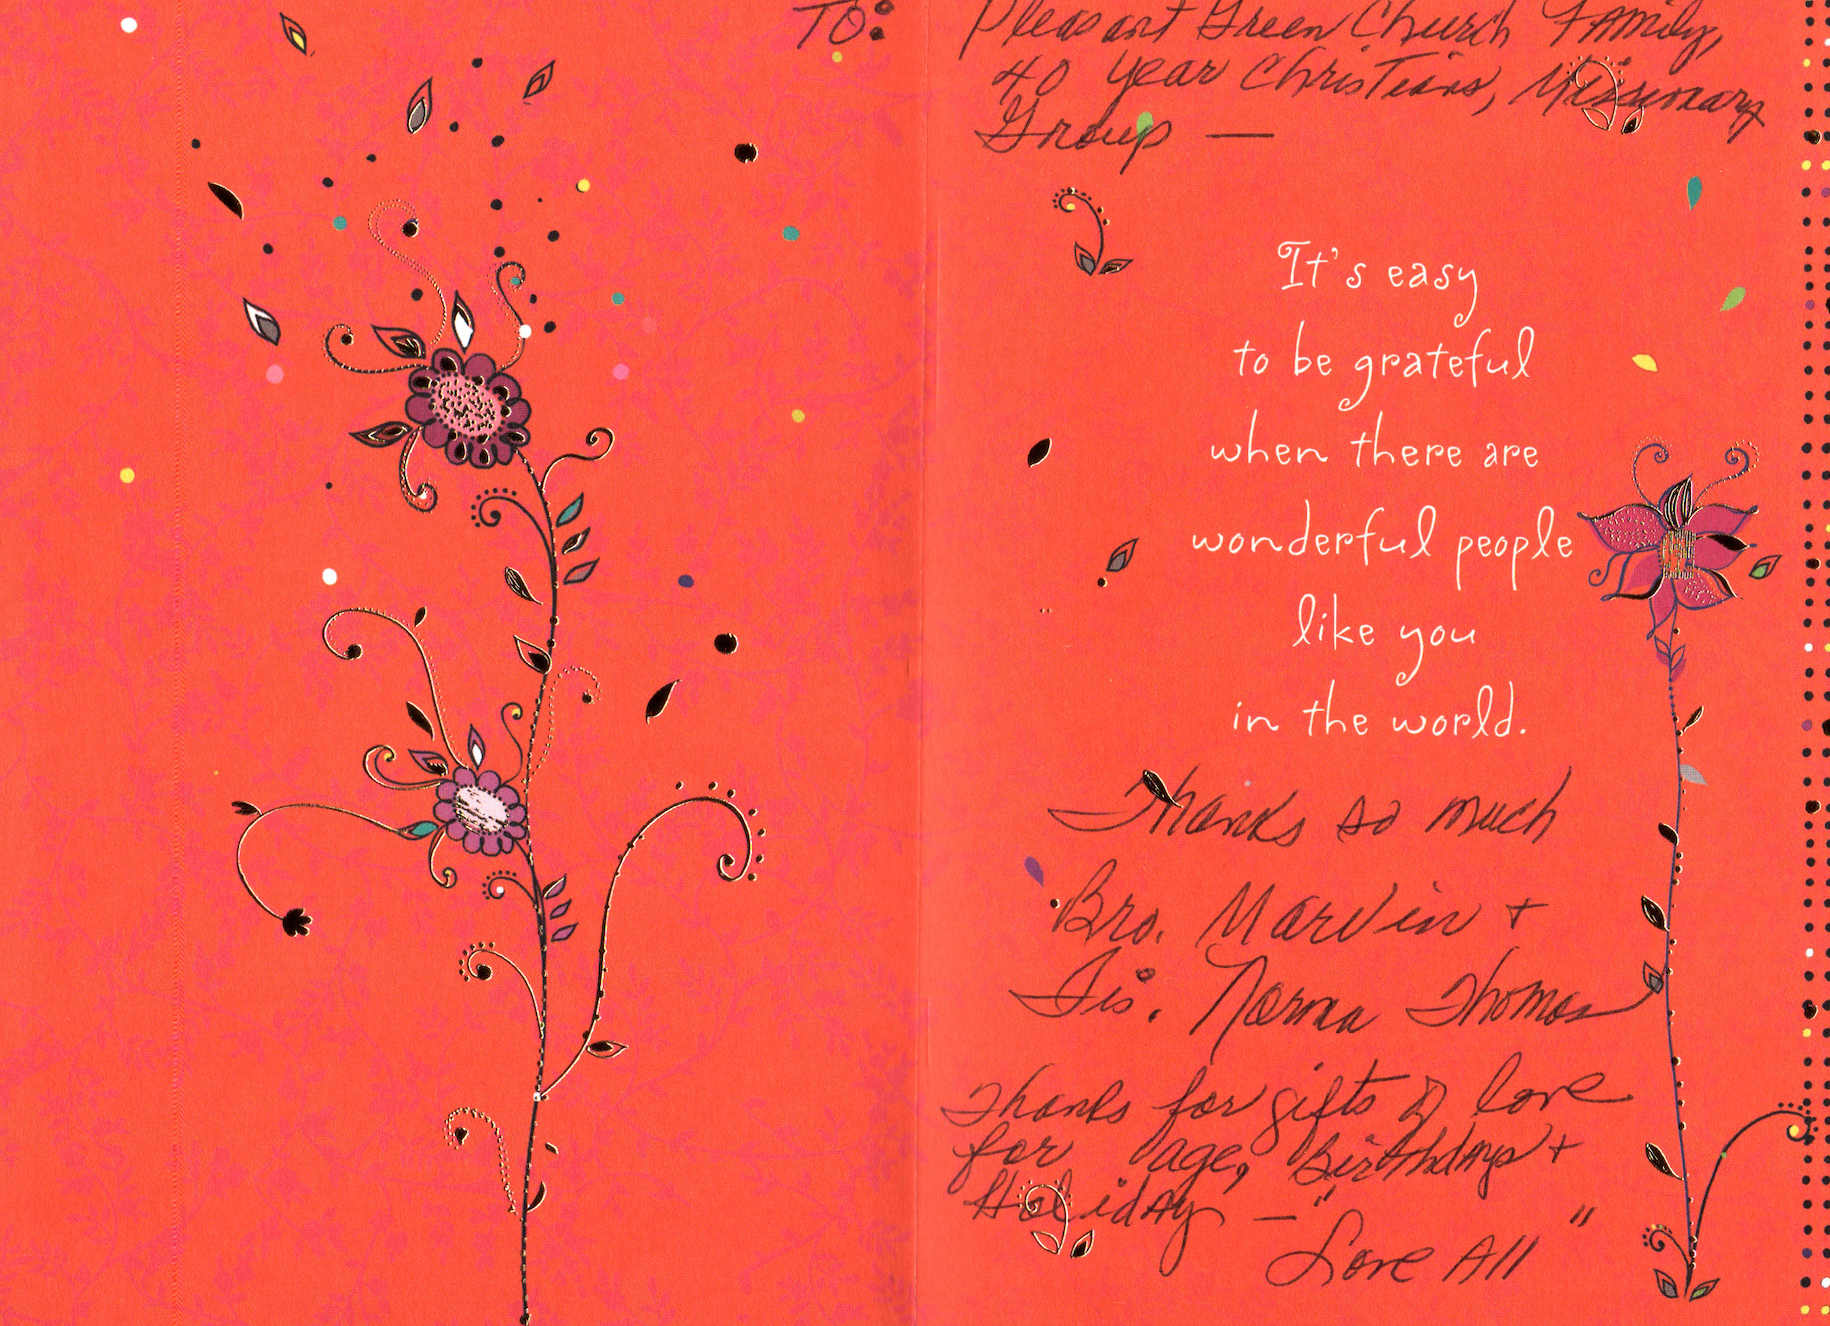 To: Pleasant Green Church Family,
40 year Christians, Missionary
Group —
It's easy
to be grateful
when there are
wonderful people
like you
in the world.
Thanks so much
Bro. Marvin +
Sis. Norma Thomas
Thanks for gifts of love
for age, Birthdays +
Holiday — "
Love All "